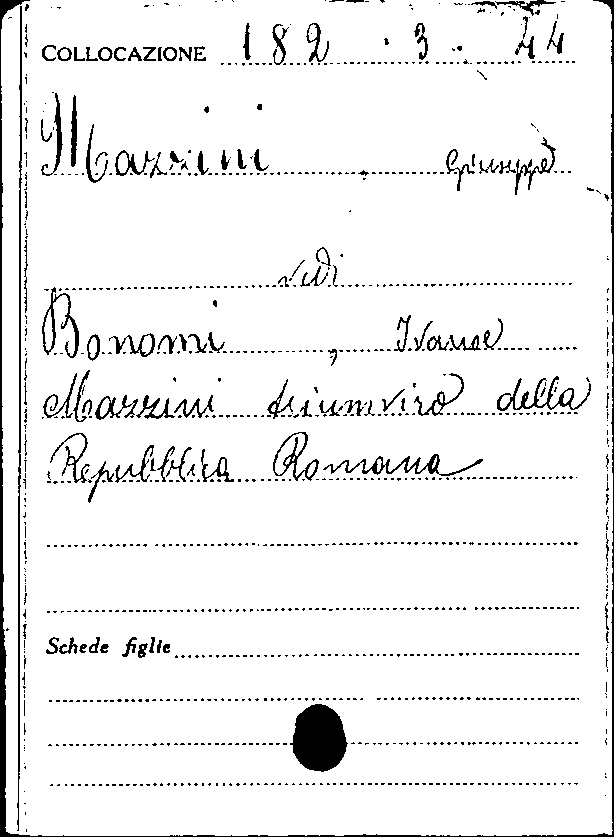 COLLOCAZIONE 182 . 3 . 44
Mazzini , Giuseppe
vedi
Bonomi , Ivanoe
Mazzini triumviro della
Repubblica Romana
Schede figlie